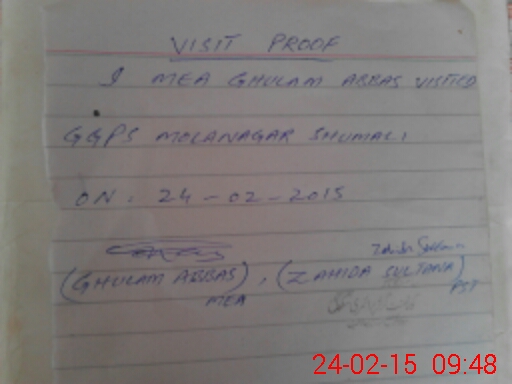 VISIT PROOF
I MEA GHULAM ABBAS VISITED
GGPS MOLANAGAR SHUMALI
ON. 24-02-2015
(GHULAM ABBAS), (ZAHIDA SULTANA)
MEA PST
24-02-15 09:48